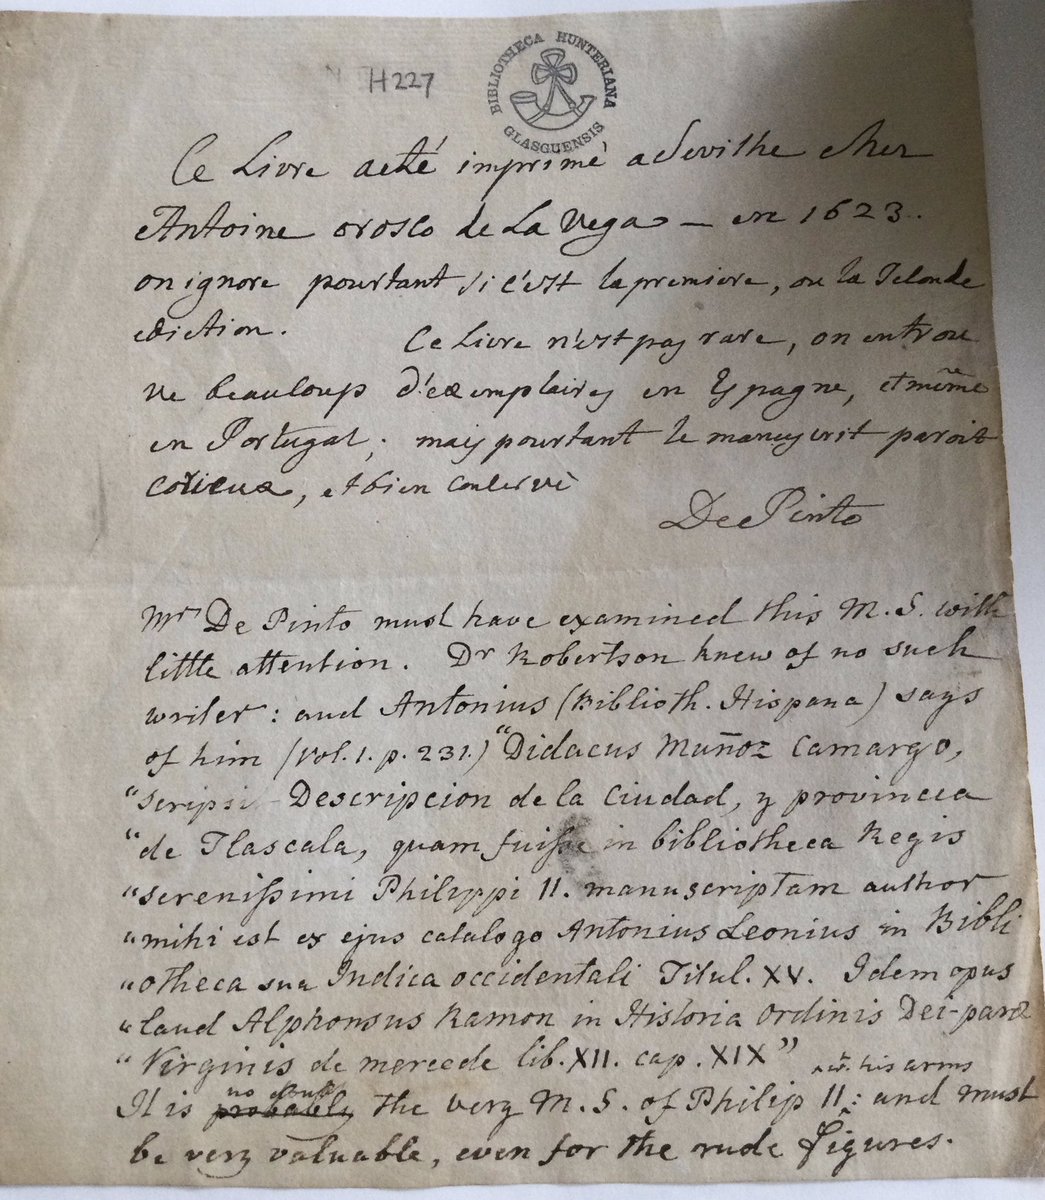 H227
BIBLIOTHECA HUNTERIANA
GLASGUENSIS
Ce Livre aeté imprimé aSevilhe chez
Antoine orosco de La Vega — en 1623.
on ignore pourtant si c'est la premiere, ou la Seconde
ediction. Ce Livre n'est pas rare, on entrou
ve beaucoup d'exemplaires en Espagne, et même
en Portugal; mais pourtant le manuscrit paroit
corieux, et bien conservé
De Pinto
Mr De Pinto must have examined this M.S. with
little attention. Dr Robertson knew of no such
writer: and Antonius (Biblioth. Hispana) says
of him (Vol. 1. p. 231.) "Didacus Muñoz Camargo,
"scripsi Descripcion de la Ciudad, y provincia
"de Tlascala, quam fuisse in bibliotheca Regis
"serenissimi Philippi II. manuscriptam author
"mihi est ex ejus catalogo Antonius Leonius in Bibli
"otheca sua Indica occidentali Titul. XV. Idem opus
"laud Alphonsus Ramon in Historia Ordinis Dei-paræ
"Virginis de mercede lib. XII. cap. XIX" wt. his arms
no doubt
It is probably the very M.S. of Philip II: and must
be very valuable, even for the rude figures.